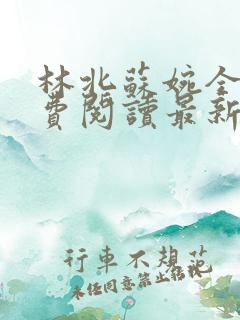 林北蘇婉全
費閱讀最新
行車不規范
未经同意禁止转载